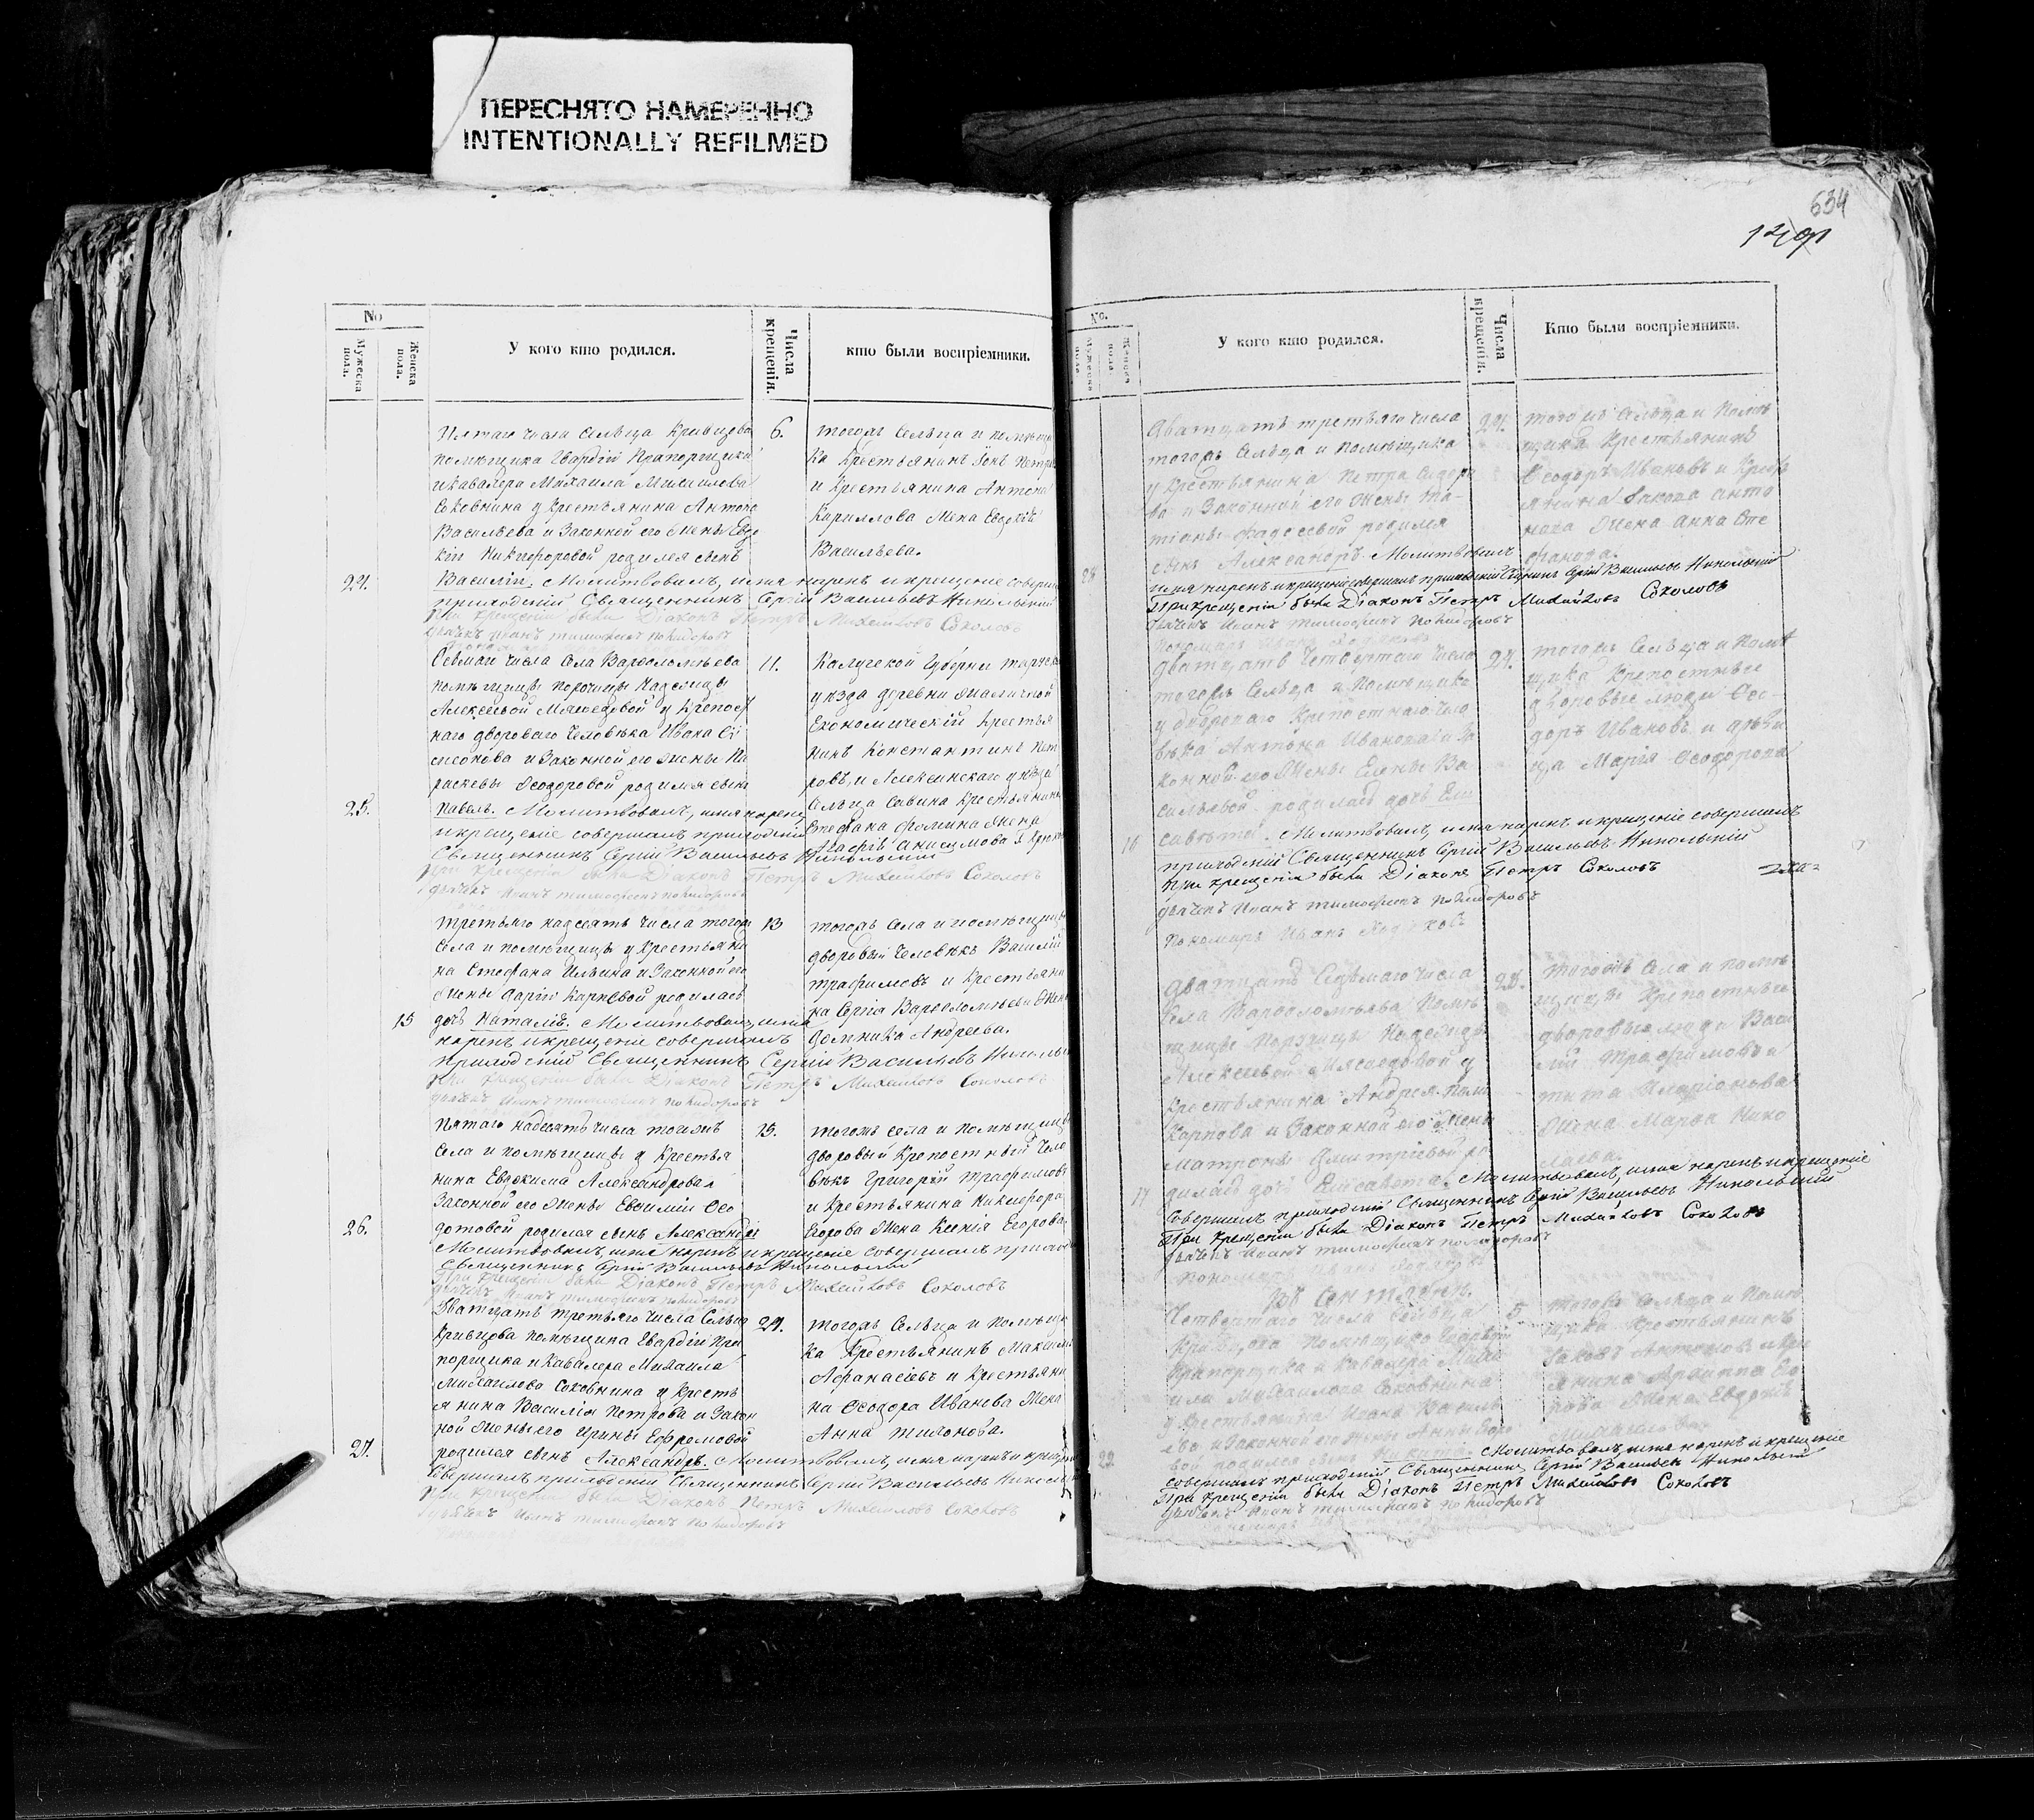 ПЕРЕСНЯТО НАМЕРЕННО
INTENTIONALLY REFILMED
No
Мужеска пола.
Женска пола.
У кого кто родился.
Числа крещенія.
кто были воспріемники.
Пятаго числа сельца Кривцова
помѣщика Гвардіи Прапорщика
и кавалера Михаила Михаилова
Соковнина у крестьянина Антона
Васильева и законной его жены Евдо
кіи Никифоровой родился сынъ
24. Василій. Молитвовалъ, имя нарекъ и крещеніе соверши
приходскій Священникъ Сергій Васильевъ Никольскій
При крещеніи были Діаконъ Петръ Михайловъ Соколовъ
дьячекъ Иванъ Тимофеевъ
6.
тогожъ сельца и помѣщи
ка крестьянинъ Іонъ Петро
и крестьянина Антона
Кириллова жена Евдокія
Васильева.
Седьмаго числа села Варфоломѣева
помѣщицы порочицы Надежды
Алексѣевой Мясоедовой у крепост
наго двороваго человѣка Ивана
и законной его жены Па
раскевы Ѳеодоровой родился сынъ
25. Павелъ. Молитвовалъ, имя нарекъ
и крещеніе совершалъ приходскій
Священникъ Сергій Васильевъ Никольскій
При крещеніи были Діаконъ Петръ Михайловъ Соколовъ
дьячекъ Иванъ Тимофеевъ
11.
Калужской Губерніи
уѣзда деревни
Економическій крестья
нинъ Константинъ Пет
ровъ, и Алексинскаго уѣзда
сельца Савина крестьянина
Стефана Фомина жена
Агафія Анисимова
Третьяго надесять числа тогожъ
села и помѣщицы у крестьяни
на Стефана Ильина и законной его
жены Даріи Карпѣвой родилась
15 дочь Наталія. Молитвовалъ, имя
нарекъ и крещеніе совершалъ
приходскій Священникъ Сергій Васильевъ Николь
При крещеніи были Діаконъ Петръ Михайловъ Соколовъ
дьячекъ Иванъ Тимофеевъ
13
тогожъ села и помѣщицы
дворовый человѣкъ Василій
Трафимовъ и крестьяни
на Сергія Варфоломѣева жена
Домника Андреева.
Пятаго надесять числа тогожъ
села и помѣщицы у крестья
нина Евдокима Александрова и
законной его жены Евфиміи Ѳео
26. дотовой родился сынъ Александръ
Молитвовалъ, имя нарекъ и крещеніе совершалъ приход
Священникъ Сергій Васильевъ Никольскій
При крещеніи были Діаконъ Петръ Михайловъ Соколовъ
дьячекъ Иванъ Тимофеевъ
15.
тогожъ села и помѣщицы
дворовый крепостный чело
вѣкъ Григорій Трафимовъ
и крестьянина Никифора
Егорова жена Ксенія Егорова
Дватцать третьяго числа сельца
Кривцова помѣщика Гвардіи Пра
порщика и Кавалера Михаила
Михаилова Соковнина у кресть
янина Василія Петрова и закон
ной жены его Ирины Ефремовой
27. родился сынъ Александръ. Молитвовалъ, имя нарекъ и креще
совершалъ приходскій Священникъ Сергій Васильевъ Николь
При крещеніи были Діаконъ Петръ Михайловъ Соколовъ
дьячекъ Иванъ Тимофеевъ
24.
тогожъ сельца и помѣщи
ка крестьянинъ Максимъ
Афанасіевъ и крестьяни
на Ѳеодора Иванова жена
Анна Тихонова.
634
No.
Мужеска пола
Женска пола
У кого кто родился.
Числа крещенія.
Кто были воспріемники.
Дватцать третьяго числа
тогожъ сельца и помѣщика
у крестьянина Петра Сидоро
ва и законной его жены Та-
тіаны Фадеевой родился
сынъ Александръ. Молитвовалъ
имя нарекъ и крещеніе совершалъ приходскій Священникъ Сергій Васильевъ Никольскій
При крещеніи были Діаконъ Петръ Михайловъ Соколовъ
дьячекъ Иванъ Тимофеевъ
24.
тогожъ сельца и помѣ
щика крестьянинъ
Ѳеодоръ Ивановъ и кресть
янина Іакова Анто
нова жена Анна Сте
фанова.
Дватцать четвертаго числа
тогожъ сельца и помѣщика
у двороваго крепостнаго чело
вѣка Антона Иванова и за
конной его жены Елены Ва
сильевой родилась дочь Ели
16 савѣта. Молитвовалъ, имя нарекъ и крещеніе совершалъ
приходскій Священникъ Сергій Васильевъ Никольскій
При крещеніи были Діаконъ Петръ Соколовъ
дьячекъ Иванъ Тимофеевъ
пономарь Иванъ
24.
тогожъ сельца и помѣ
щика крепостные
дворовые люди Ѳео-
доръ Ивановъ и дѣви
ца Марія Ѳеодорова
Дватцать седьмаго числа
села Варфоломѣева помѣ
щицы порутчицы Надежды
Алексѣевой Мясоедовой у
крестьянина Андрея
Карпова и законной его жены
Матроны Дмитріевой ро
17 дилась дочь Елисавета. Молитвовалъ, имя нарекъ и крещеніе
совершалъ приходскій Священникъ Сергій Васильевъ Никольскій
При крещеніи были Діаконъ Петръ Михайловъ Соколовъ
дьячекъ Иванъ Тимофеевъ
28.
тогожъ села и помѣ
щицы крепостные
дворовые люди Васи
лій Трафимовъ и
Тита Иларіонова
жена Марфа Нико
лаева.
Въ Сентябрѣ.
Четвертаго числа сельца
Кривцова помѣщика Гвардіи
Прапорщика и Кавалера Миха
ила Михаилова Соковнина
у крестьянина Ивана Василь
ева и законной его жены Анны
вой родился сынъ Молитвовалъ, имя нарекъ и крещеніе
совершалъ приходскій Священникъ Сергій Васильевъ Никольскій
При крещеніи были Діаконъ Петръ Михайловъ Соколовъ
дьячекъ Иванъ Тимофеевъ
5
тогожъ сельца и помѣ
щика крестьянинъ
Іаковъ Антоновъ
янина Архиппа
жена Евдокія